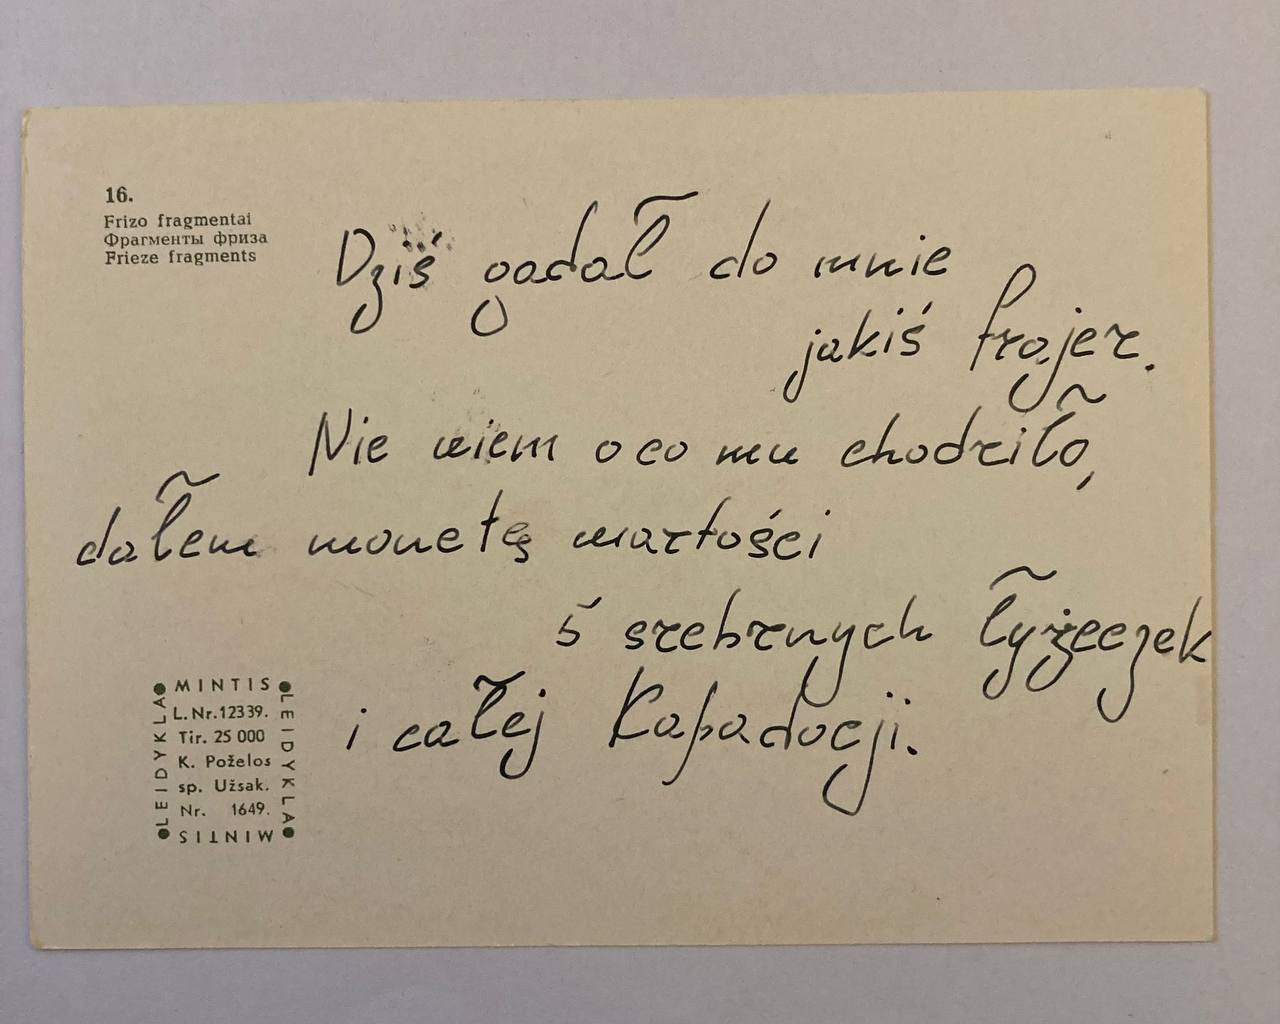 16.
Frizo fragmentai
Фрагменты фриза
Frieze fragments
Dziś gadał do mnie
jakiś frajer.
Nie wiem o co mu chodziło,
dałem monetę wartości
5 srebrnych łyżeczek
i całej Kapadocji.
MINTIS
LEIDYKLA
L. Nr. 12339.
Tir. 25 000
K. Poželos
sp. Užsak.
Nr. 1649.
MINTIS
LEIDYKLA